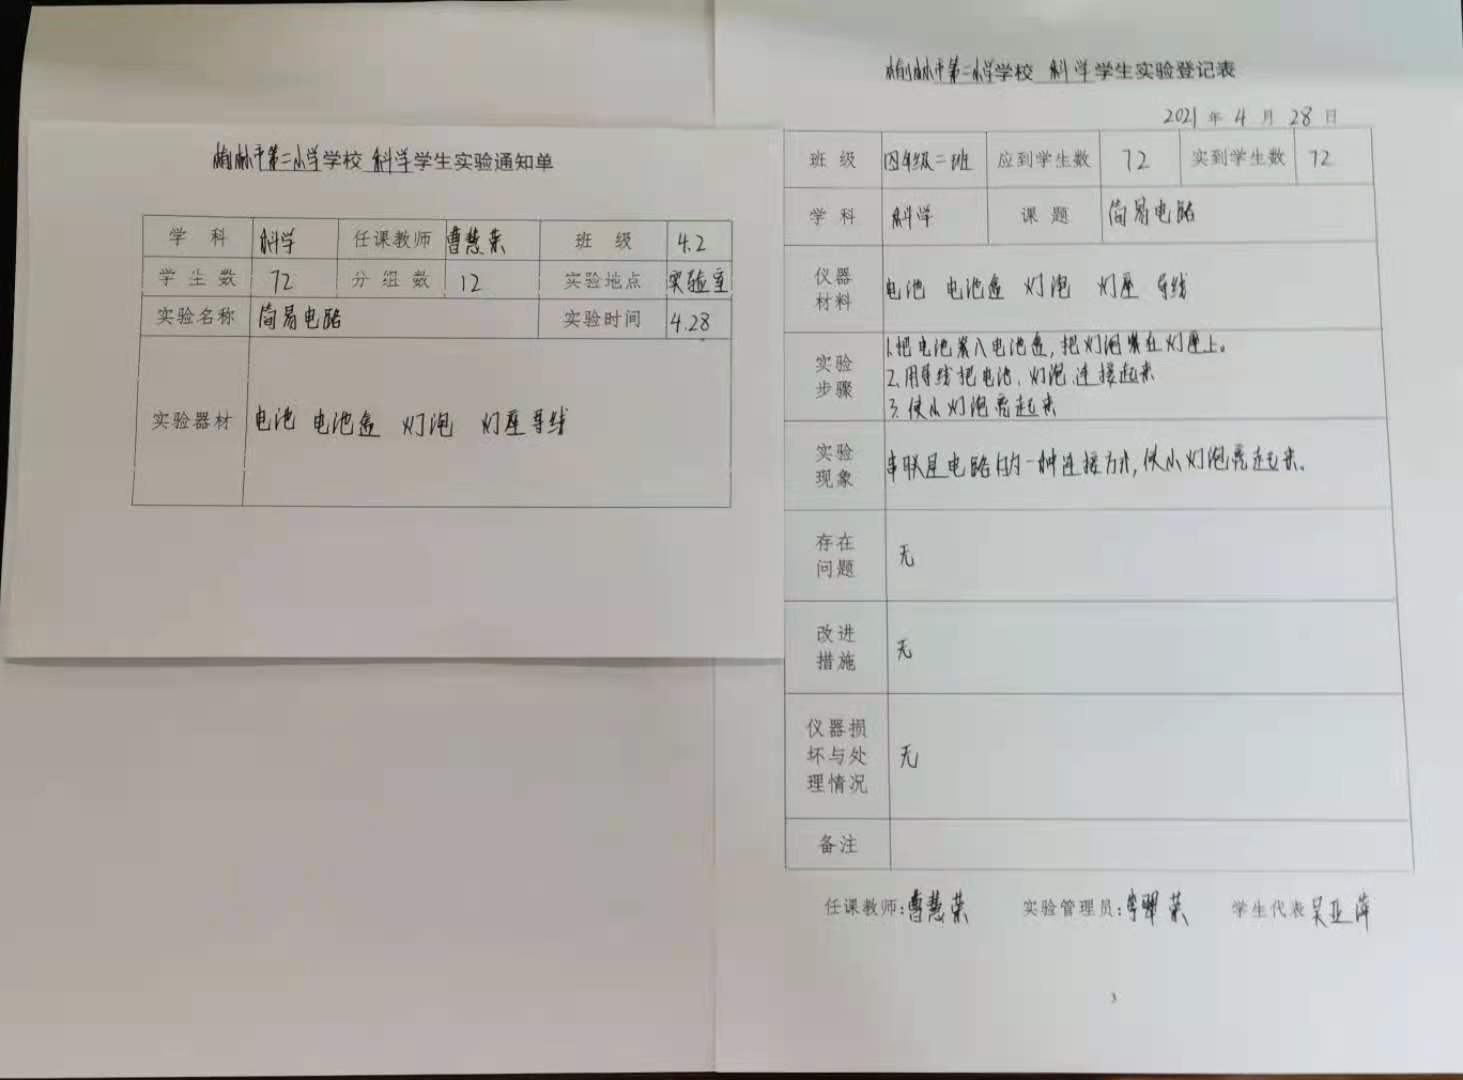 榆林市第二小学学校 科学学生实验通知单
学 科 科学 任课教师 曹慧荣 班 级 4.2
学 生 数 72 分 组 数 12 实验地点 实验室
实验名称 简易电路 实验时间 4.28
实验器材 电池 电池盒 灯泡 灯座 导线
榆林市第二小学学校 科学学生实验登记表
2021 年 4 月 28 日
班 级 四年级二班 应到学生数 72 实到学生数 72
学 科 科学 课 题 简易电路
仪器
材料
电池 电池盒 灯泡 灯座 导线
实验
步骤
1.把电池装入电池盒,把灯泡装在灯座上。
2.用导线把电池、灯泡连接起来
3.使小灯泡亮起来
实验
现象
串联是电路的一种连接方式,使小灯泡亮起来。
存在
问题
无
改进
措施
无
仪器损
坏与处
理情况
无
备注
任课教师:曹慧荣 实验管理员:李翠荣 学生代表 吴亚萍
3